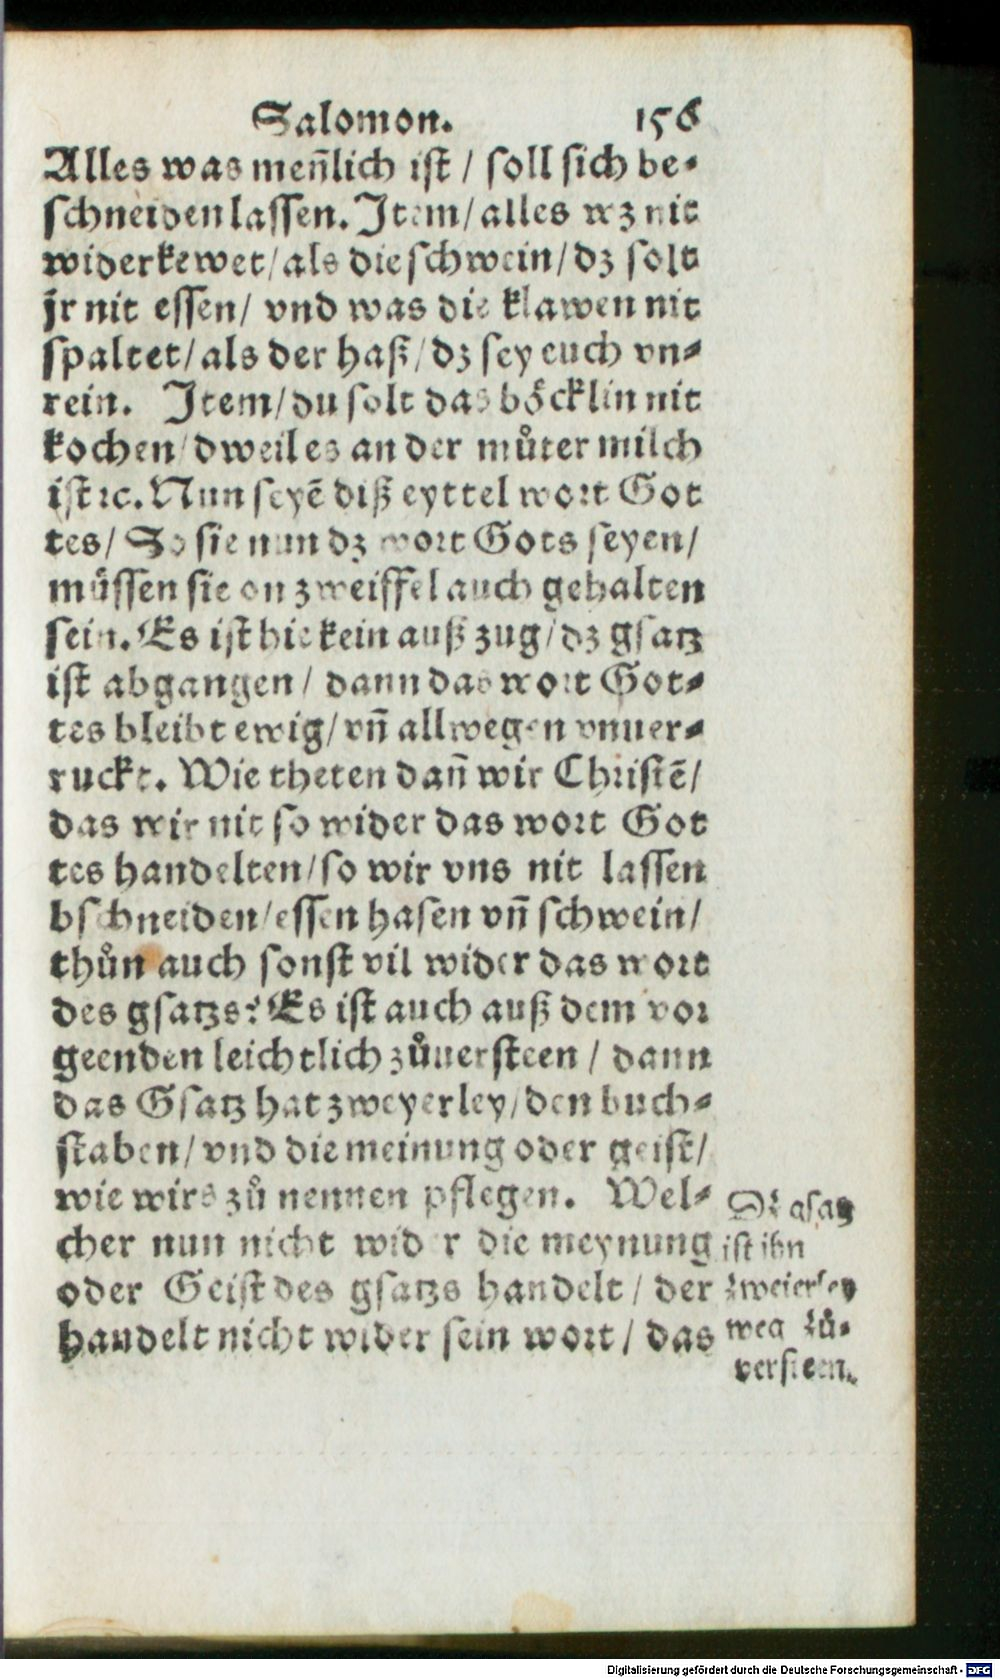 Salomon. 156
Alles was meñlich ist / soll sich be⸗
schneiden lassen. Item/ alles wz nit
widerkewet/ als die schwein/ dz solt
jr nit essen/ vnd was die klawen nit
spaltet/ als der haß/ dz sey euch vn⸗
rein. Item/ du solt das böcklin nit
kochen/ dweil es an der můter milch
ist ꝛc. Nun seyẽ diß eyttel wort Got
tes/ So sie nun dz wort Gots seyen/
müssen sie on zweiffel auch gehalten
sein. Es ist hie kein auß zug/ dz gsatz
ist abgangen / dann das wort Got⸗
tes bleibt ewig/ vñ allwegen vnuer⸗
ruckt. Wie theten dañ wir Christẽ/
das wir nit so wider das wort Got
tes handelten/ so wir vns nit lassen
bschneiden/ essen hasen vñ schwein/
thůn auch sonst vil wider das wort
des gsatzs? Es ist auch auß dem vor
geenden leichtlich zůuersteen / dann
das Gsatz hat zweyerley/ den buch⸗
staben/ vnd die meinung oder geist/
wie wirs zů nennen pflegen. Wel⸗
cher nun nicht wider die meynung
oder Geist des gsatzs handelt / der
handelt nicht wider sein wort / das
gsatz
ist ihn
zweierley
weg zů⸗
versteen.
Digitalisierung gefördert durch die Deutsche Forschungsgemeinschaft - DFG